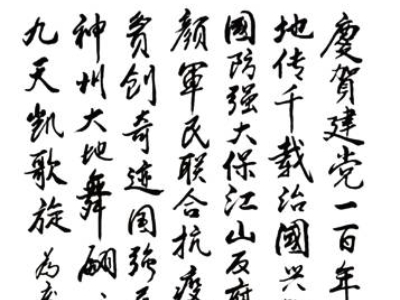 慶賀建党一百年
地传千载治國兴
國防强大保江山反腐
颜軍民联合抗疫
贫创奇迹国强民
神州大地舞翩
九天凯歌旋为庆